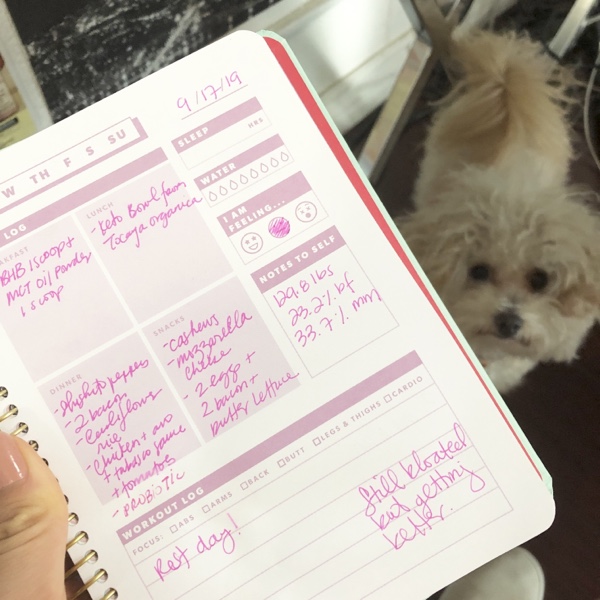 9/17/19
W TH F S SU
SLEEP
HRS
WATER
I AM
FEELING...
NOTES TO SELF
129.8 lbs
23.2% bf
33.7% mm
LOG
LUNCH
- Keto Bowl from
Tocaya organica
BHB 1 scoop +
MCT Oil Powder
1 scoop
SNACKS
- cashews
- mozzarella
cheese
- 2 eggs +
2 bacon +
butter lettuce
DINNER
- Shishito peppers
- 2 bacon
- Cauliflower
rice
- Chicken + avo
+ tabasco sauce
+ tomatoes
- PROBIOTIC
WORKOUT LOG
FOCUS: ABS ARMS BACK BUTT LEGS & THIGHS CARDIO
Rest day!
Still bloated
but getting
better.